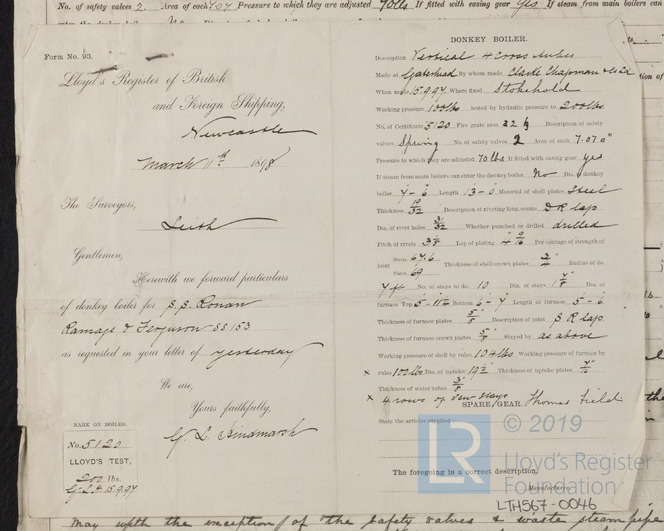 No. of safety valves 2 Area of each 7.07 Pressure to which they are adjusted 70lbs If fitted with easing gear yes If steam from main boilers can
Form No. 93.
Lloyd's Register of British
and Foreign Shipping,
Newcastle
March 11th 1898
The Surveyors,
Leith
Gentlemen,
Herewith we forward particulars
of donkey boiler for S.S. Ronan
Ramage & Ferguson SS 153
as requested in your letter of yesterday
We are,
Yours faithfully,
G. L. Hindmarsh
MARK ON BOILER.
No. 5120
LLOYD'S TEST,
200 lbs.
G.L.H 15.9.97
DONKEY BOILER.
Description Vertical 4 Cross tubes
Made at Gateshead By whom made Clarke Chapman & Co Ld
When made 15.9.97 Where fixed Stokehold
Working pressure 100lbs tested by hydraulic pressure to 200lbs.
No. of Certificate 5120 Fire grate area 22 Description of safety
valves Spring No. of safety valves 2 Area of each 7.07 "
Pressure to which they are adjusted 70 lbs If fitted with easing gear yes
If steam from main boilers can enter the donkey boiler No Dia. of donkey
boiler 7 - 6 Length 13 - 0 Material of shell plates Steel
Thickness 19/32 Description of riveting long. seams D R lap
Dia. of rivet holes Whether punched or drilled drilled
Pitch of rivets Lap of plating 4 9/16 Per centage of strength of
joint Rivets 67.6 Thickness of shell crown plates Radius of do.
Plates 69
No. of stays to do. 10 Dia. of stays 1 7/8 Dia. of
furnace Top 5'. 11 Bottom 6 - 7 Length of furnace 5 - 6
Thickness of furnace plates 5/8 Description of joint S R lap
Thickness of furnace crown plates 5/8 Stayed by as above
Working pressure of shell by rules 104lbs Working pressure of furnace by
x rules 100lbs Dia. of uptake 19 Thickness of uptake plates
Thickness of water tubes 3/8
x 4 rows of stays
SPARE GEAR. Thomas Field
State the articles supplied:
The foregoing is a correct description,
Manufacturer.
LR © 2019
Lloyd's Register
Foundation
LTH567-0046
may with the exception of the safety valves & waste steam pipe